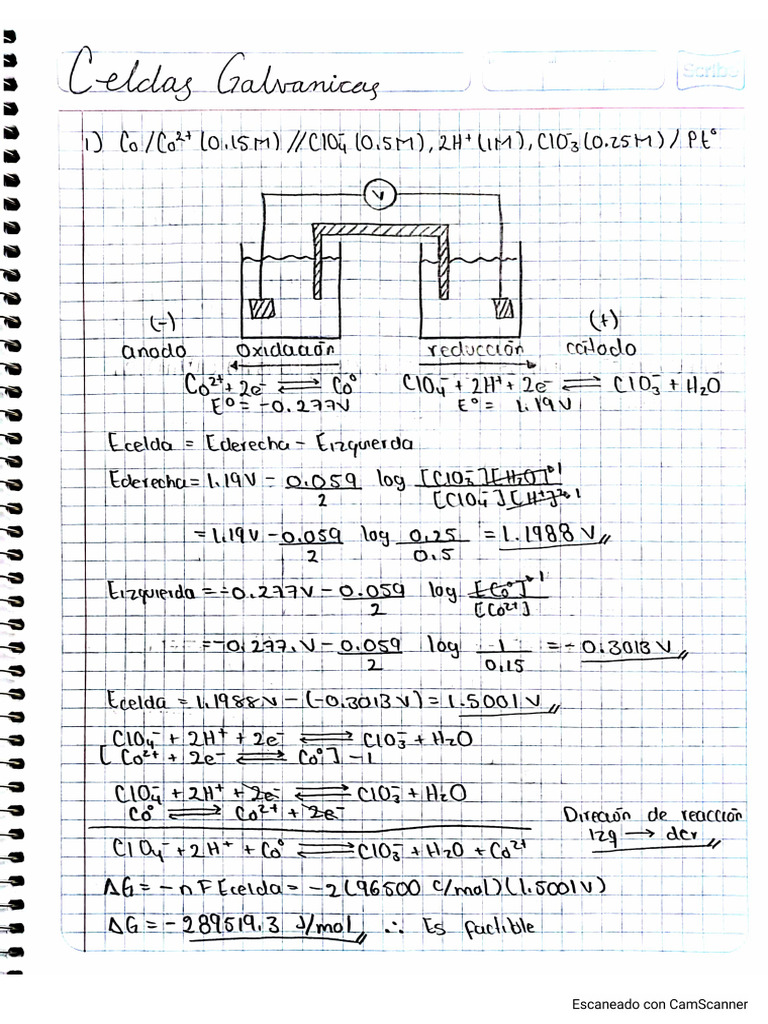 Celdas Galvanicas
Scribe
1) Co/Co²⁺(0.15M)//ClO₄⁻(0.5M), 2H⁺(1M), ClO₃⁻(0.25M)/Pt⁰
V
(-) (+)
anodo oxidación reducción cátodo
Co²⁺ + 2e⁻ ⇌ Co⁰ ClO₄⁻ + 2H⁺ + 2e⁻ ⇌ ClO₃⁻ + H₂O
E⁰ = -0.277V E⁰ = 1.19V
Ecelda = Ederecha - Eizquierda
Ederecha = 1.19V - 0.059/2 log [ClO₃⁻][H₂O]¹/[ClO₄⁻][H⁺]² ¹
= 1.19V - 0.059/2 log 0.25/0.5 = 1.1988 V
Eizquierda = -0.277V - 0.059/2 log [Co⁰]¹/[Co²⁺]
= -0.277V - 0.059/2 log 1/0.15 = -0.3013V
Ecelda = 1.1988V - (-0.3013V) = 1.5001V
ClO₄⁻ + 2H⁺ + 2e⁻ ⇌ ClO₃⁻ + H₂O
[Co²⁺ + 2e⁻ ⇌ Co⁰] -1
ClO₄⁻ + 2H⁺ + 2e⁻ ⇌ ClO₃⁻ + H₂O
Co⁰ ⇌ Co²⁺ + 2e⁻ Direción de reacción
izq → der
ClO₄⁻ + 2H⁺ + Co⁰ ⇌ ClO₃⁻ + H₂O + Co²⁺
ΔG = -nFEcelda = -2(96500 C/mol)(1.5001V)
ΔG = -289519.3 J/mol ∴ Es factible
Escaneado con CamScanner